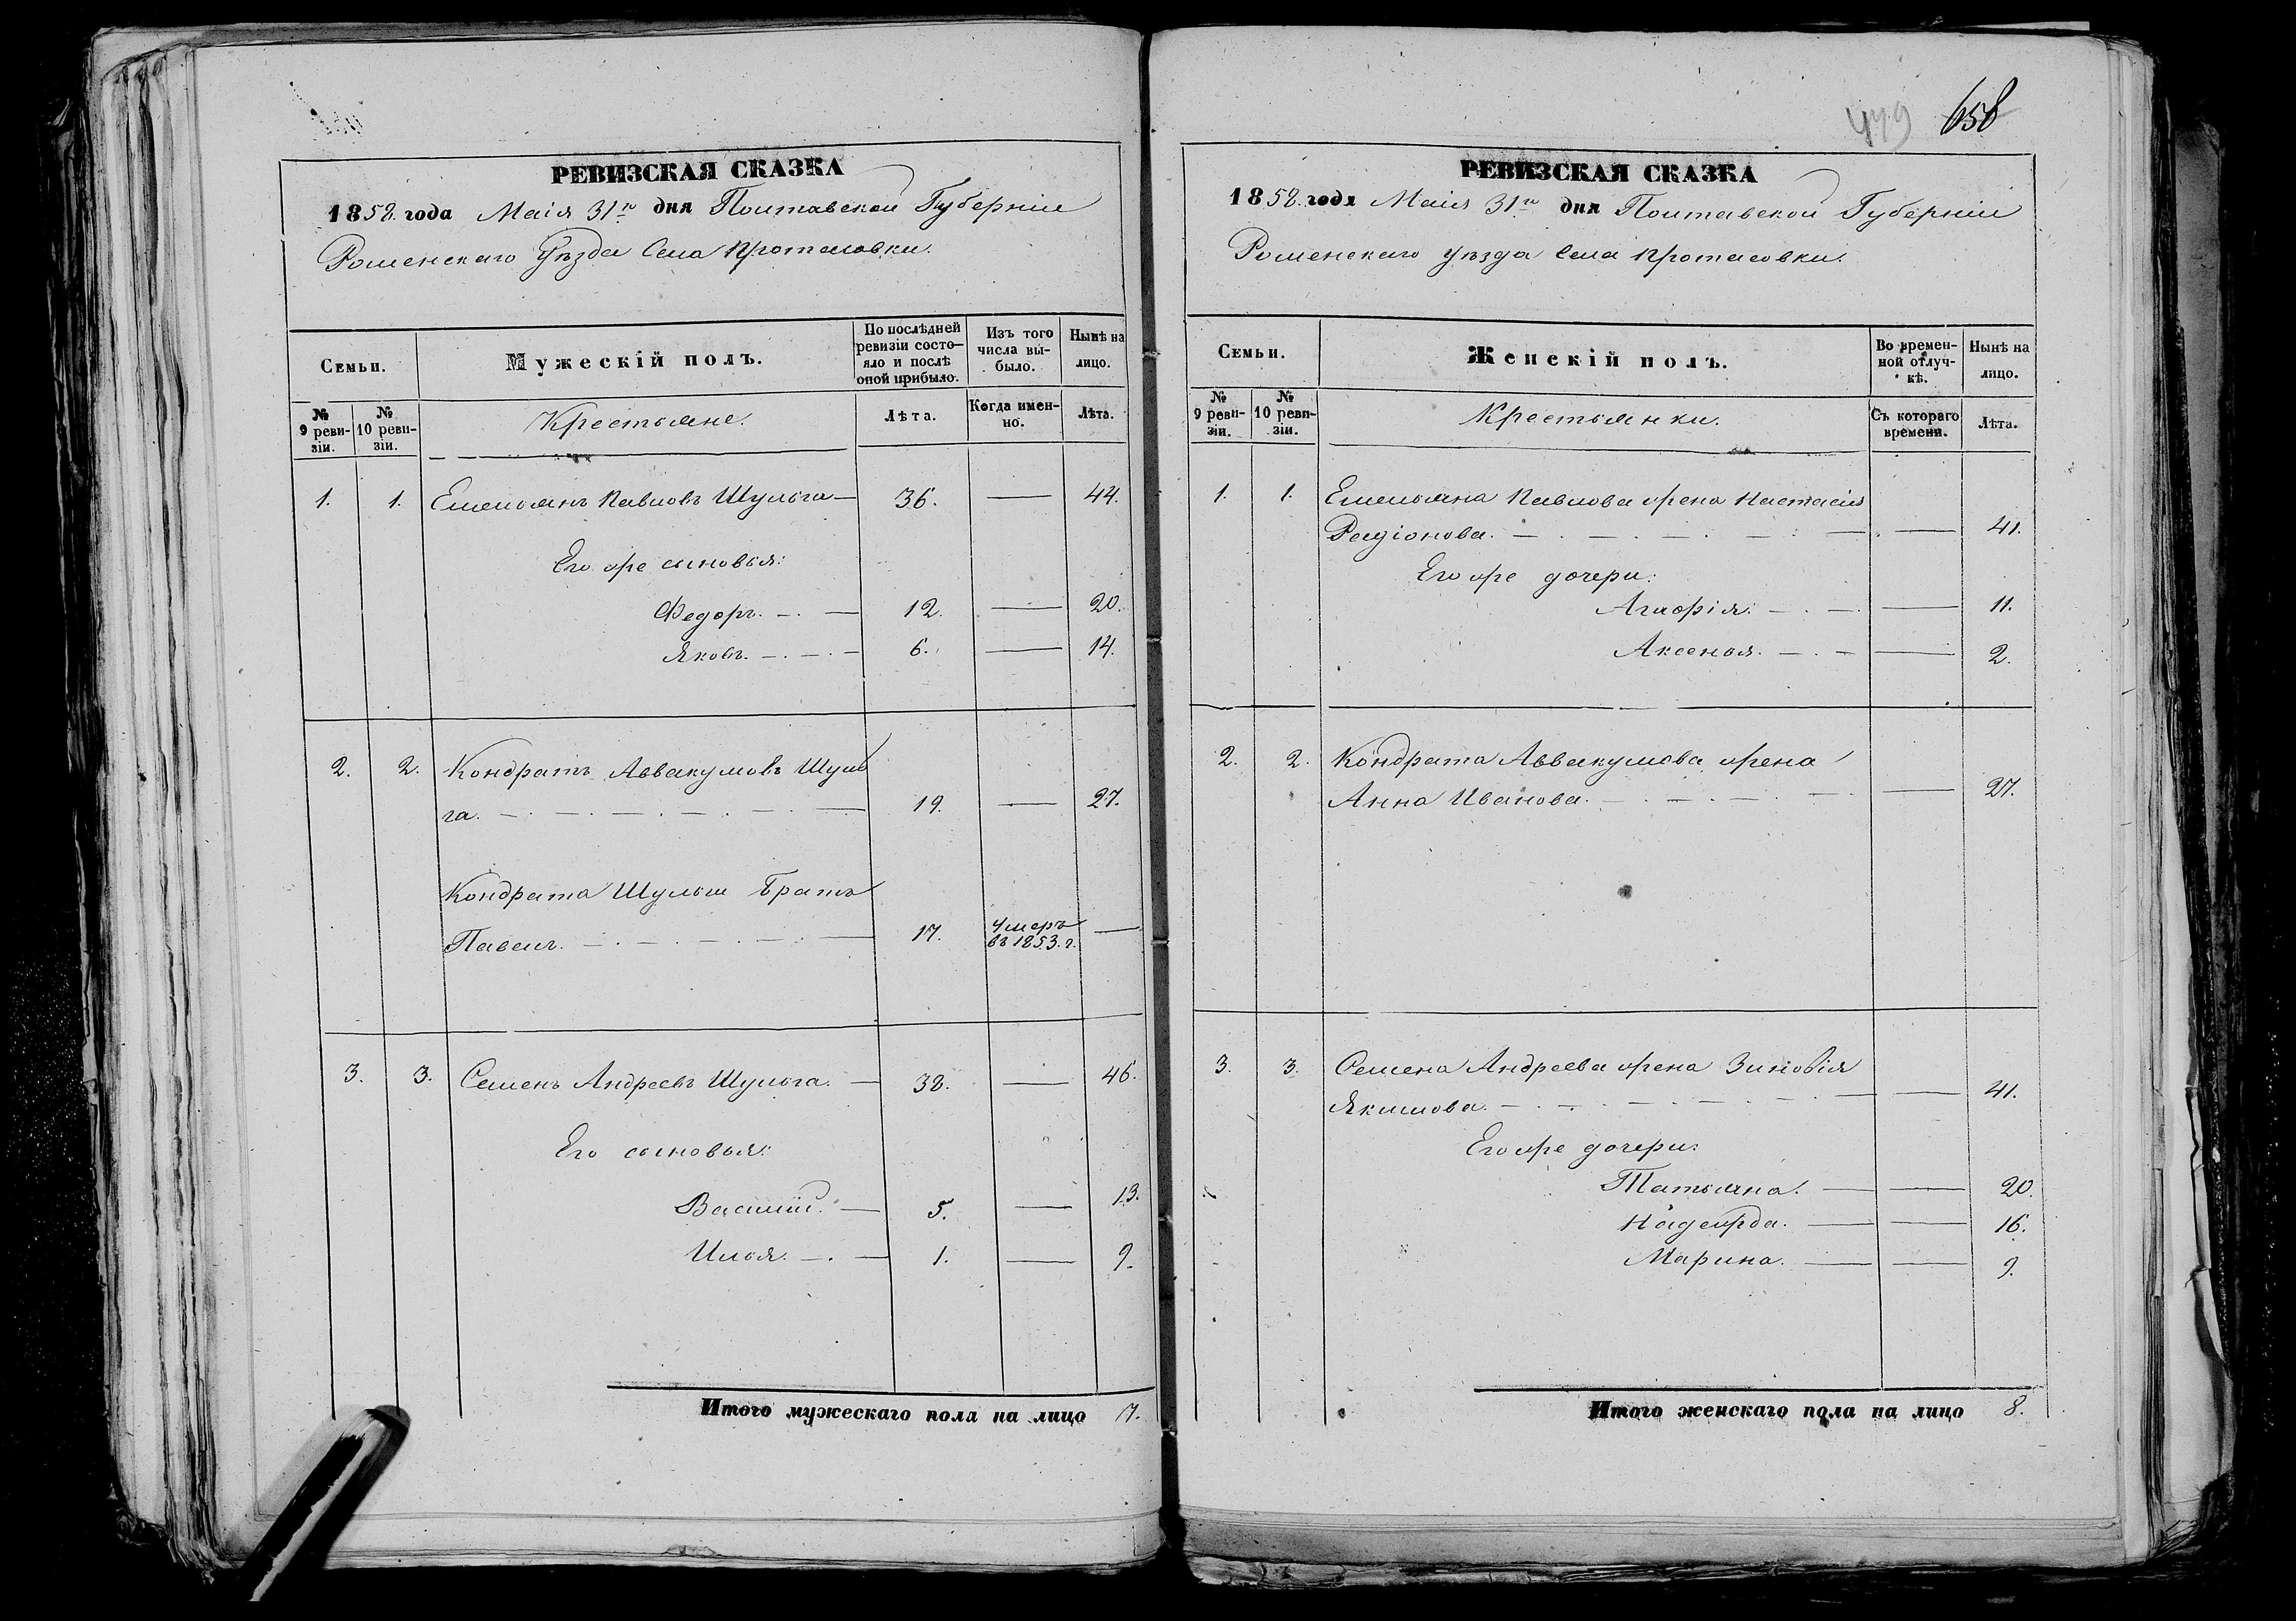 РЕВИЗСКАЯ СКАЗКА
1858. года Маія 31го дня Полтавской Губерніи
Роменскаго Уѣзда Села Протасовки.
Семьи.
Мужескій полъ.
По послѣдней ревизіи состо-
яло и послѣ оной прибыло.
Изъ того числа вы-
было.
Нынѣ на лицо.
№ 9 реви-
зіи.
№ 10 реви-
зіи.
Крестьяне.
Лѣта.
Когда имен-
но.
Лѣта.
1. 1. Емельянъ Павловъ Шульга — 36. — 44.
Его же сыновья:
Федоръ. — . — 12. — 20.
Яковъ. — . — . — 6. — 14.
2. 2. Кондратъ Аввакумовъ Шуль
га. — . — . — . — . — . — 19. — 27.
Кондрата Шульги Братъ
Павелъ. — . — . — . — . — 17. Умеръ въ 1853. г. —
3. 3. Семенъ Андреевъ Шульга. — 38. — 46.
Его сыновья:
Василій. — 5. — 13.
Илья. — . — 1. — 9.
Итого мужескаго пола на лицо 7.
779 658
РЕВИЗСКАЯ СКАЗКА
1858. года Маія 31го дня Полтавской Губерніи
Роменскаго уѣзда Села Протасовки.
Семьи.
Женскій полъ.
Во времен-
ной отлуч-
кѣ.
Нынѣ на лицо.
№ 9 реви-
зіи.
№ 10 реви-
зіи.
Крестьянки.
Съ котораго времени.
Лѣта.
1. 1. Емельяна Павлова жена Настасія
Радіонова. — . — . — . — . — — 41.
Его же дочери:
Агафія. — . — . — 11.
Аксенья. — . — — 2.
2. 2. Кондрата Аввакумова жена
Анна Иванова. — . — . — . — — 27.
3. 3. Семена Андреева жена Зиновія
Якимова. — . — . — . — . — . — — 41.
Его же дочери:
Татьяна. — — 20.
Надежда. — — 16.
Марина. — — 9.
Итого женскаго пола на лицо 8.